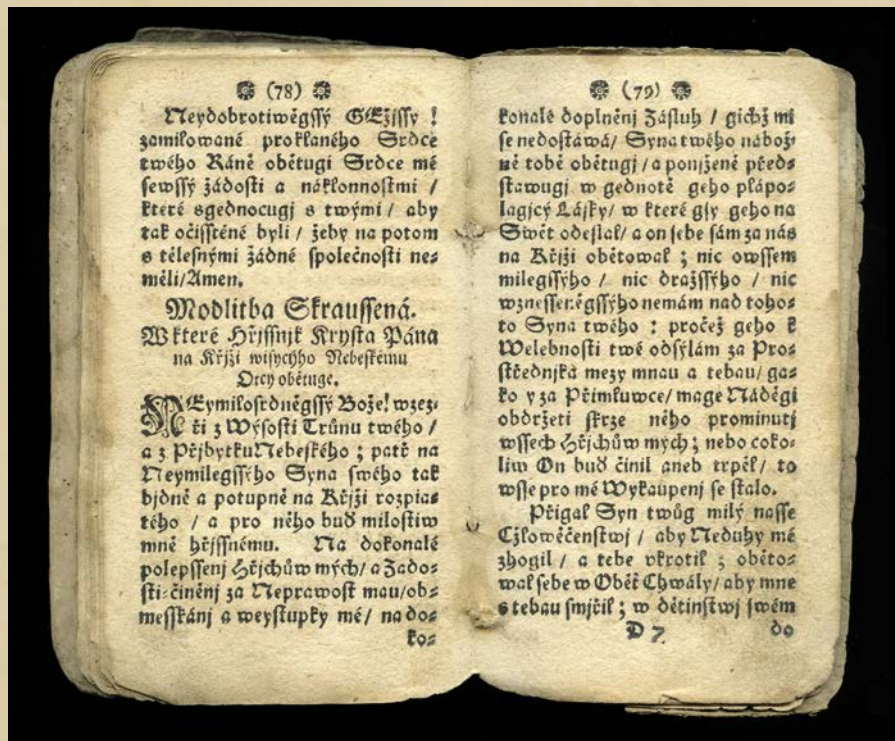 (78)
Neydobrotiwěgssý GEžissy !
zamilowané proklaného Srdce
twého Ráně obětugi Srdce mé
sewssý žádosti a náklonnostmi /
které sgednocugj s twými / aby
tak očisstěné byli / žeby na potom
s tělesnými žádné společnosti ne⸗
měli/Amen.
Modlitba Skraussená.
W které Hřjssnjk Krysta Pána
na Křjži wisycýho Nebeskému
Otcy obětuge.
NEymilosrdněgssý Bože! wzez⸗
ři z Wýsosti Trůnu twého /
a z Přjbytku Nebeského ; patř na
Neymilegssýho Syna swého tak
bjdně a potupně na Křjži rozpia⸗
tého / a pro něho buď milostiw
mně hřjssnému. Na dokonalé
polepssenj Hřjchůw mých/ a Zado⸗
sti⸗činěnj za Neprawost mau/ob⸗
messkánj a weystupky mé/ na do⸗
ko⸗
(79)
konalé doplněnj Zásluh / gichž mi
se nedostáwá/ Syna twého nábož⸗
ně tobě obětugj / a ponjženě před⸗
stawugj w gednotě geho plápo⸗
lagjcý Lásky/ w které gsy geho na
Swět odeslal/ a on sebe sám za nás
na Křjži obětowal ; nic owssem
milegssýho / nic dražssýho / nic
wznesseněgssýho nemám nad toho⸗
to Syna twého : pročež geho k
Welebnosti twé odsýlám za Pro⸗
střednjka mezy mnau a tebau/ ga⸗
ko y za Přimluwce/ mage Náděgi
obdržeti skrze něho prominutj
wssech Hřjchůw mých ; nebo coko⸗
liw On buď činil aneb trpěl/ to
wsse pro mé Wykaupenj se stalo.
Přigal Syn twůg milý nasse
Cžlowěčenstwj / aby Neduhy mé
zhogil / a tebe vkrotil ; oběto⸗
wal sebe w Oběť Chwály/ aby mne
s tebau smjřil ; w dětinstwj swém
D 7 do